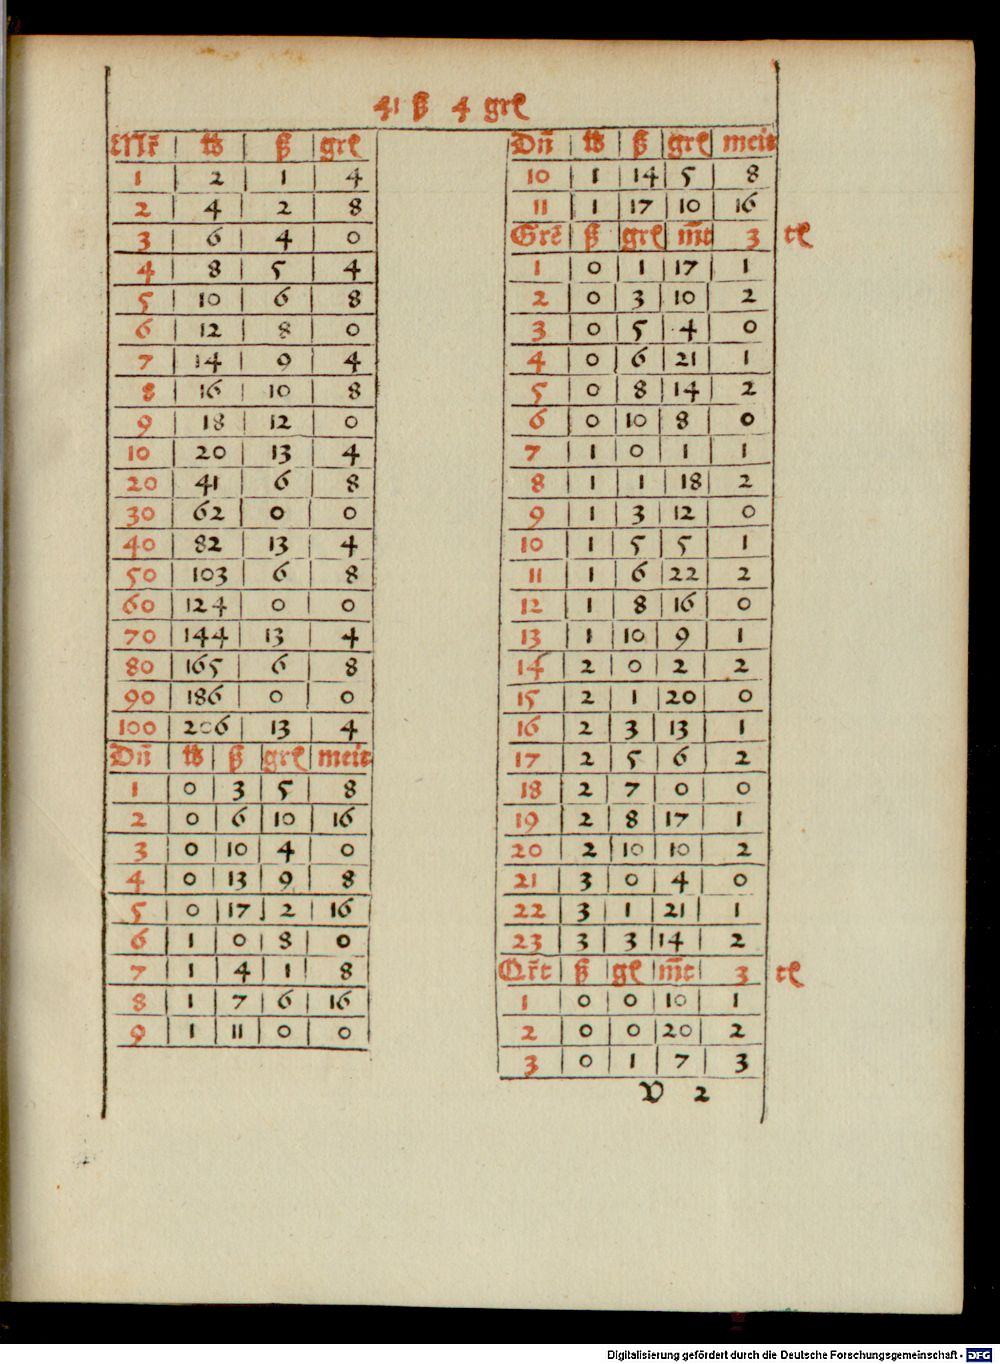 41 ß 4 grl
Mr̄ | lb | ß | grl
1 | 2 | 1 | 4
2 | 4 | 2 | 8
3 | 6 | 4 | 0
4 | 8 | 5 | 4
5 | 10 | 6 | 8
6 | 12 | 8 | 0
7 | 14 | 9 | 4
8 | 16 | 10 | 8
9 | 18 | 12 | 0
10 | 20 | 13 | 4
20 | 41 | 6 | 8
30 | 62 | 0 | 0
40 | 82 | 13 | 4
50 | 103 | 6 | 8
60 | 124 | 0 | 0
70 | 144 | 13 | 4
80 | 165 | 6 | 8
90 | 186 | 0 | 0
100 | 206 | 13 | 4
Dn̄ | lb | ß | grl | meit
1 | 0 | 3 | 5 | 8
2 | 0 | 6 | 10 | 16
3 | 0 | 10 | 4 | 0
4 | 0 | 13 | 9 | 8
5 | 0 | 17 | 2 | 16
6 | 1 | 0 | 8 | 0
7 | 1 | 4 | 1 | 8
8 | 1 | 7 | 6 | 16
9 | 1 | 11 | 0 | 0
Dn̄ | lb | ß | grl | meit
10 | 1 | 14 | 5 | 8
11 | 1 | 17 | 10 | 16
Grē | ß | grl | m̄t | 3 tl
1 | 0 | 1 | 17 | 1
2 | 0 | 3 | 10 | 2
3 | 0 | 5 | 4 | 0
4 | 0 | 6 | 21 | 1
5 | 0 | 8 | 14 | 2
6 | 0 | 10 | 8 | 0
7 | 1 | 0 | 1 | 1
8 | 1 | 1 | 18 | 2
9 | 1 | 3 | 12 | 0
10 | 1 | 5 | 5 | 1
11 | 1 | 6 | 22 | 2
12 | 1 | 8 | 16 | 0
13 | 1 | 10 | 9 | 1
14 | 2 | 0 | 2 | 2
15 | 2 | 1 | 20 | 0
16 | 2 | 3 | 13 | 1
17 | 2 | 5 | 6 | 2
18 | 2 | 7 | 0 | 0
19 | 2 | 8 | 17 | 1
20 | 2 | 10 | 10 | 2
21 | 3 | 0 | 4 | 0
22 | 3 | 1 | 21 | 1
23 | 3 | 3 | 14 | 2
Qr̄t | ß | gl | m̄t | 3 tl
1 | 0 | 0 | 10 | 1
2 | 0 | 0 | 20 | 2
3 | 0 | 1 | 7 | 3
V 2
Digitalisierung gefördert durch die Deutsche Forschungsgemeinschaft - DFG